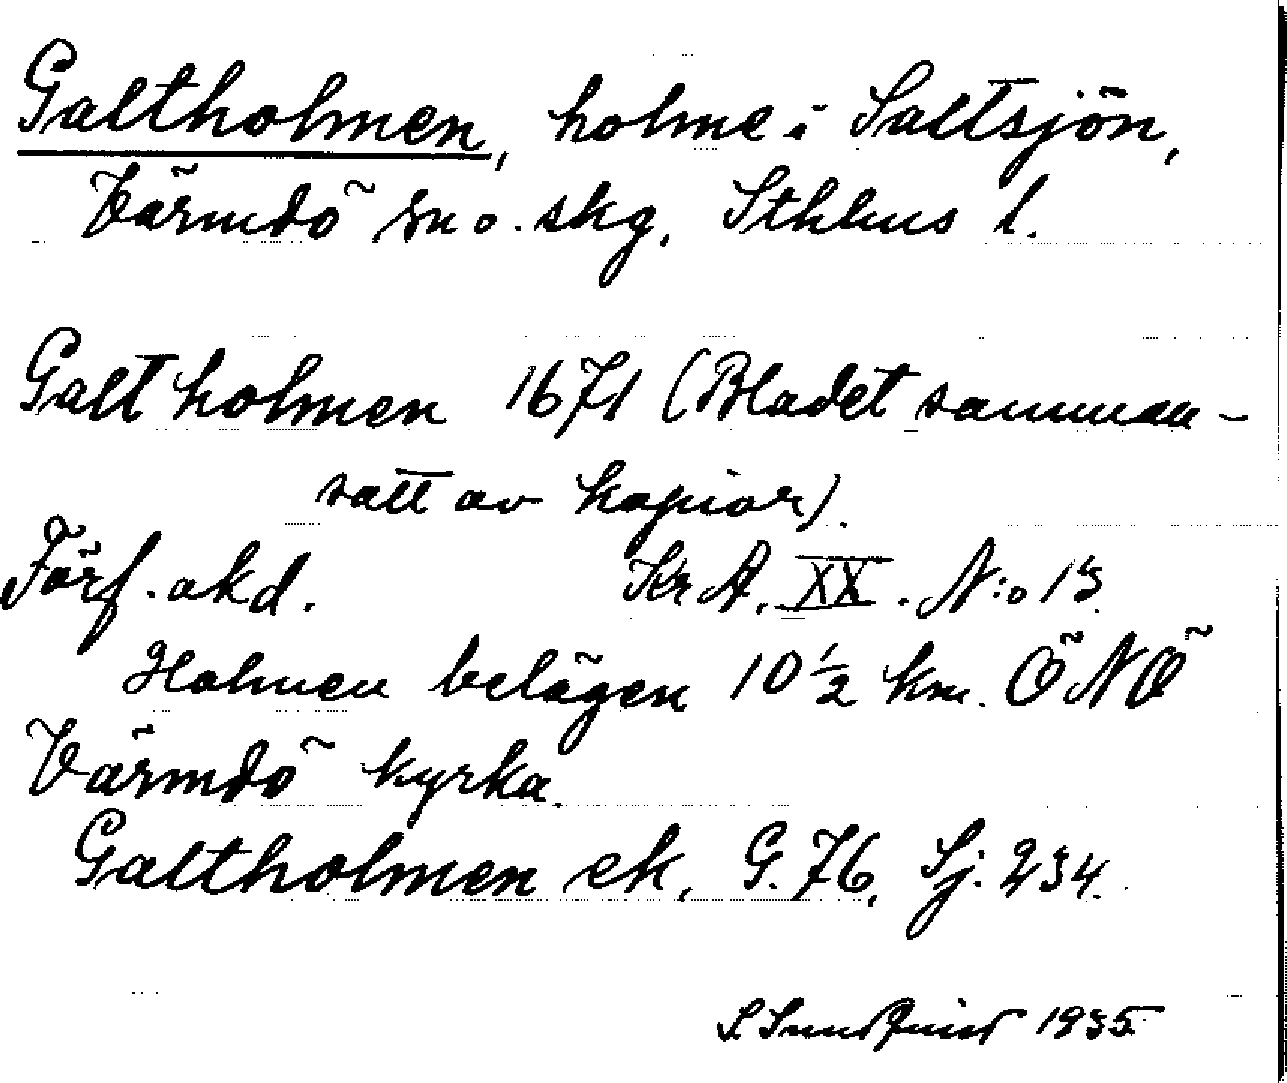 Galtholmen, holme i Saltsjön,
Värmdö sn o. skg, Sthlms l.
Galtholmen 1671 (Bladet samman-
satt av kopior).
Förf. okd. Kr A. XX. N:o 13
Holmen belägen 10 ½ km. ÖNÖ
Värmdö kyrka.
Galtholmen ek. G. 76, Sj. 234.
S. Sundquist 1935